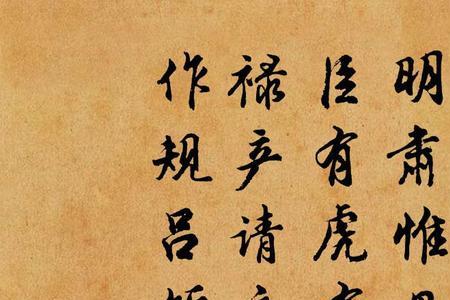 明肃惟
臣有虎
禄产请
作规吕